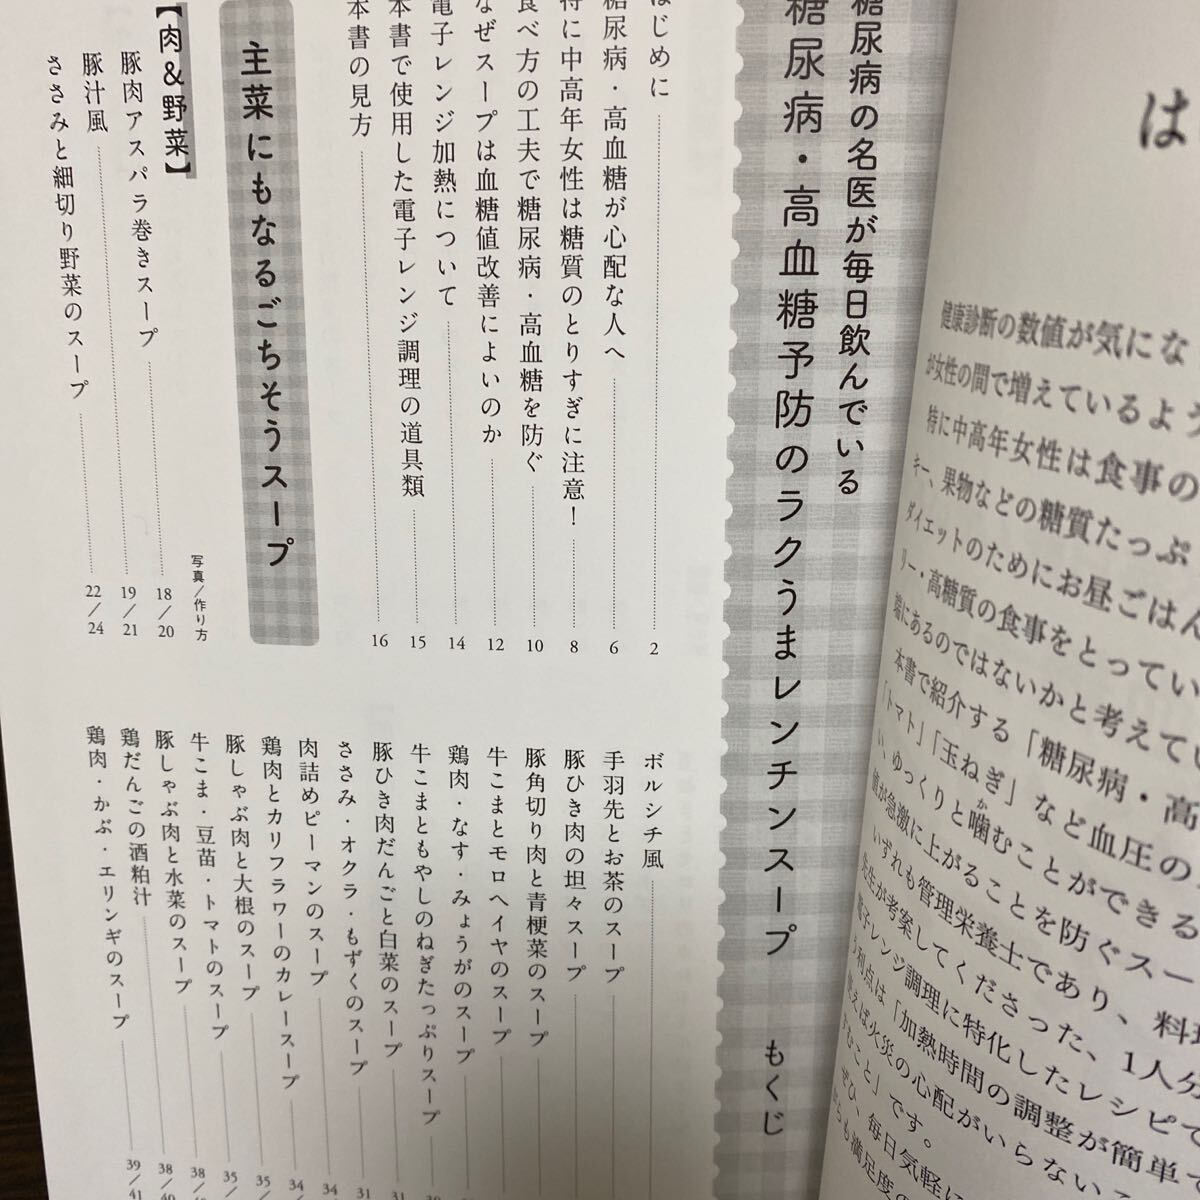 は
健康診断の数値が気にな
が女性の間で増えているよう
特に中高年女性は食事の
キー、果物などの糖質たっぷ
ダイエットのためにお昼ごはん
リー・高糖質の食事をとってい
にあるのではないかと考えてい
本書で紹介する「糖尿病・高
「トマト」「玉ねぎ」など血圧の
い、ゆっくりと噛むことができる
か
値が急激に上がることを防ぐスー
いずれも管理栄養士であり、料理
先生が考案してくださった、1人分
電子レンジ調理に特化したレシピで
利点は「加熱時間の調整が簡単で
えば火災の心配がいらない
むこと」です。
ぜひ、毎日気軽に
も満足度の
糖尿病の名医が毎日飲んでいる
糖尿病・高血糖予防のラクうまレンチンスープ もくじ
はじめに 2
糖尿病・高血糖が心配な人へ 6
特に中高年女性は糖質のとりすぎに注意! 8
食べ方の工夫で糖尿病・高血糖を防ぐ 10
なぜスープは血糖値改善によいのか 12
電子レンジ加熱について 14
本書で使用した電子レンジ調理の道具類 15
本書の見方 16
主菜にもなるごちそうスープ
写真/作り方
【肉&野菜】
豚肉アスパラ巻きスープ 18/20
豚汁風 19/21
ささみと細切り野菜のスープ 22/24
ボルシチ風
手羽先とお茶のスープ
豚ひき肉の坦々スープ
豚角切り肉と青梗菜のスープ
牛こまとモロヘイヤのスープ
鶏肉・なす・みょうがのスープ
牛こまともやしのねぎたっぷりスープ
豚ひき肉だんごと白菜のスープ 31
ささみ・オクラ・もずくのスープ 31
肉詰めピーマンのスープ 34
鶏肉とカリフラワーのカレースープ 34
豚しゃぶ肉と大根のスープ 35
牛こま・豆苗・トマトのスープ 35
豚しゃぶ肉と水菜のスープ 38
鶏だんごの酒粕汁 38
鶏肉・かぶ・エリンギのスープ 39/41